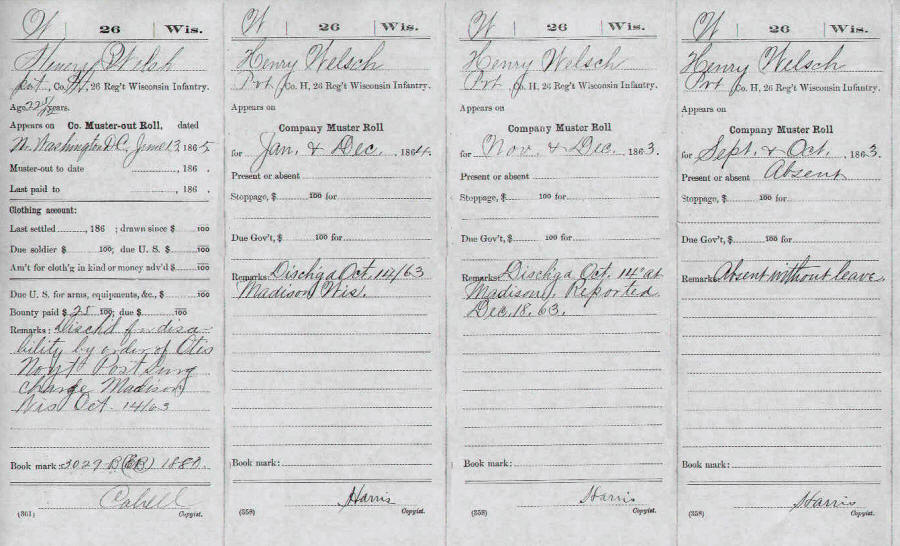 W | 26 | Wis.
Henry Welch
Pvt., Co. H, 26 Reg't Wisconsin Infantry.
Age 22 5/12 years.
Appears on Co. Muster-out Roll, dated
Nr. Washington D.C. June 13, 1865.
Muster-out to date , 186 .
Last paid to , 186 .
Clothing account:
Last settled , 186 ; drawn since $ 100
Due soldier $ 100; due U. S. $ 100
Am't for cloth'g in kind or money adv'd $ 100
Due U. S. for arms, equipments, &c., $ 100
Bounty paid $ 25 100; due $ 100
Remarks: Disch'd for disa-
bility by order of Otis
Hoyt Post Surg
charge Madison
Wis Oct. 14/63
Book mark: 188
Cabell
(361) Copyist.
W | 26 | Wis.
Henry Welsch
Pvt, Co. H, 26 Reg't Wisconsin Infantry.
Appears on
Company Muster Roll
for Jan. & Dec., 1864.
Present or absent
Stoppage, $ 100 for
Due Gov't, $ 100 for
Remarks: Dischgd Oct. 14/63
Madison Wis.
Book mark:
Harris
(358) Copyist.
W | 26 | Wis.
Henry Welsch
Pvt, Co. H, 26 Reg't Wisconsin Infantry.
Appears on
Company Muster Roll
for Nov. & Dec., 1863.
Present or absent
Stoppage, $ 100 for
Due Gov't, $ 100 for
Remarks: Dischgd Oct. 14" at
Madison, Reported
Dec. 18. 63.
Book mark:
Harris
(358) Copyist.
W | 26 | Wis.
Henry Welsch
Pvt, Co. H, 26 Reg't Wisconsin Infantry.
Appears on
Company Muster Roll
for Sept. & Oct., 1863.
Present or absent Absent
Stoppage, $ 100 for
Due Gov't, $ 100 for
Remarks: Absent without leave.
Book mark:
Harris
(358) Copyist.